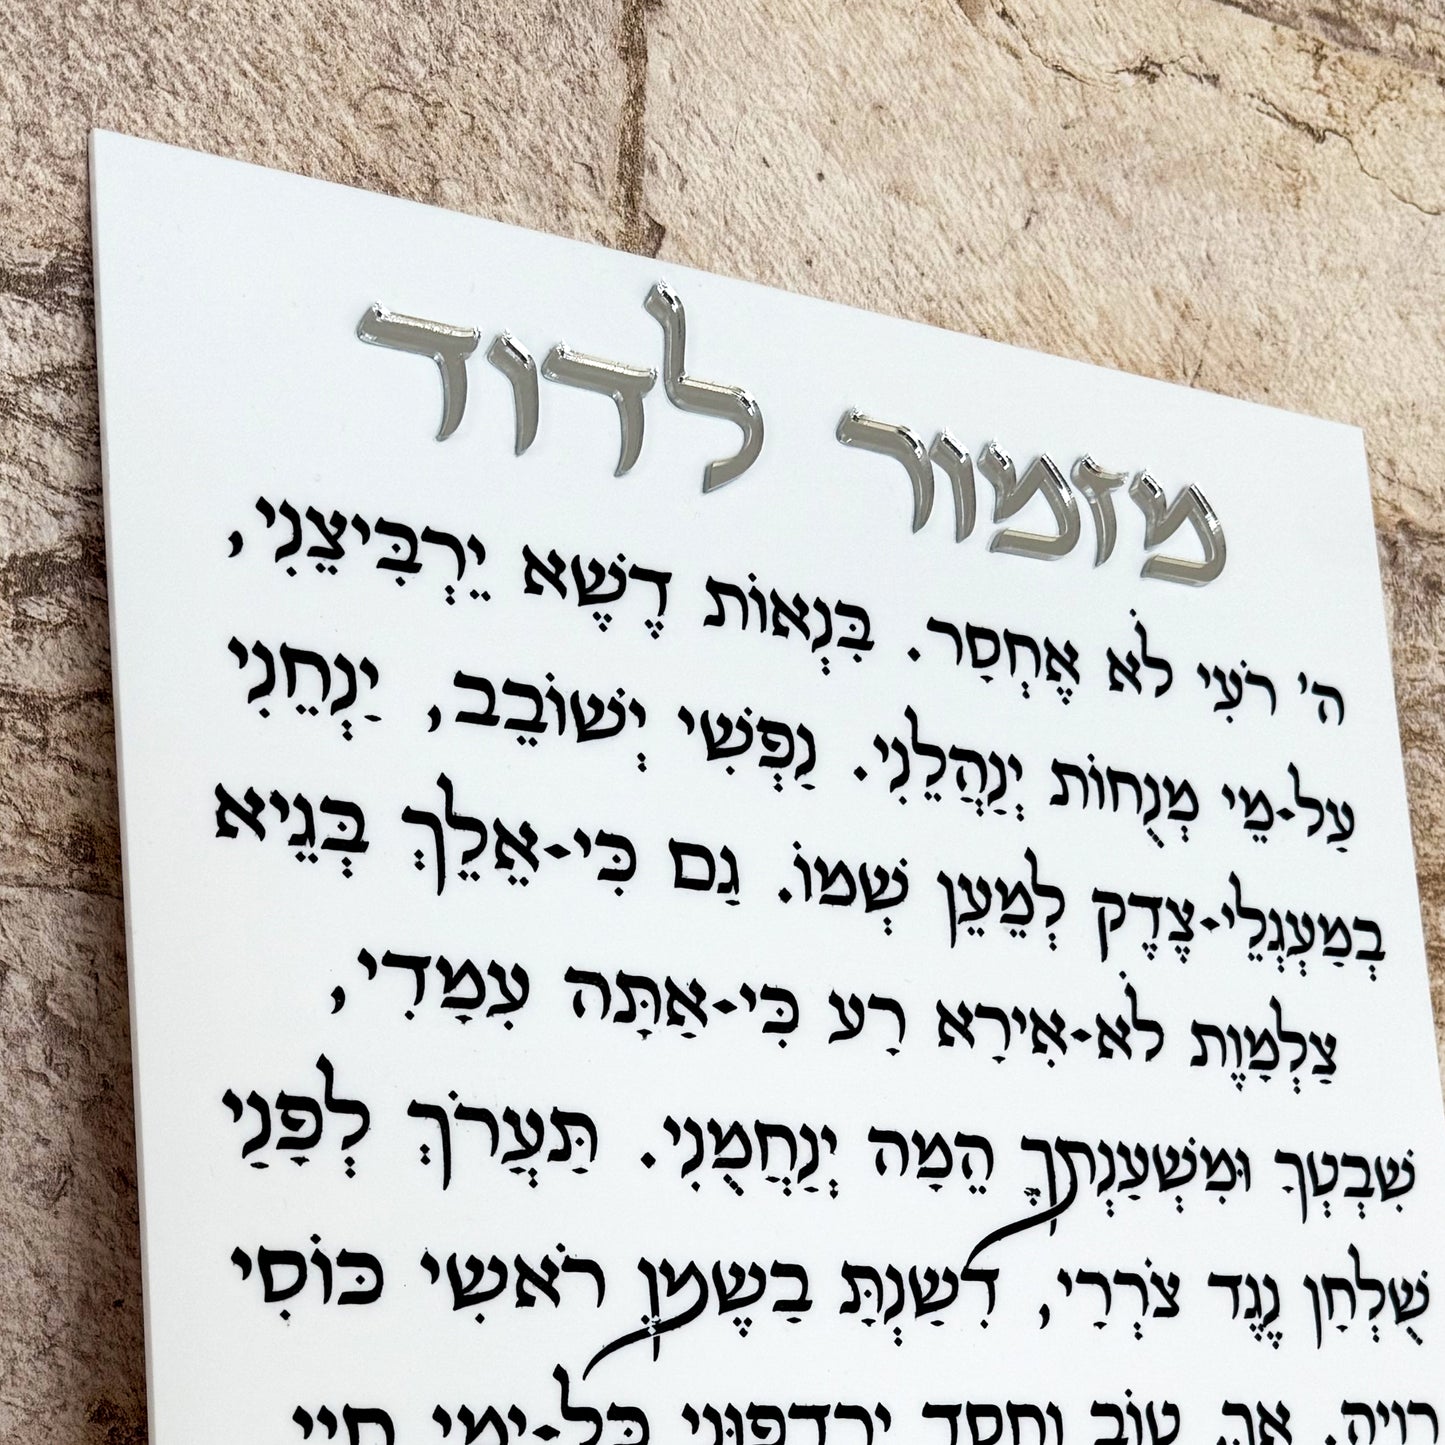 מזמור לדוד
ה' רֹעִי לֹא אֶחְסָר. בִּנְאוֹת דֶּשֶׁא יַרְבִּיצֵנִי,
עַל-מֵי מְנֻחוֹת יְנַהֲלֵנִי. נַפְשִׁי יְשׁוֹבֵב, יַנְחֵנִי
בְמַעְגְּלֵי-צֶדֶק לְמַעַן שְׁמוֹ. גַּם כִּי-אֵלֵךְ בְּגֵיא
צַלְמָוֶת לֹא-אִירָא רָע כִּי-אַתָּה עִמָּדִי,
שִׁבְטְךָ וּמִשְׁעַנְתֶּךָ הֵמָּה יְנַחֲמֻנִי. תַּעֲרֹךְ לְפָנַי
שֻׁלְחָן נֶגֶד צֹרְרָי, דִּשַּׁנְתָּ בַשֶּׁמֶן רֹאשִׁי כּוֹסִי
רויה. אך טוֹב וחסד ירדפוּני כּל-ימי חיי